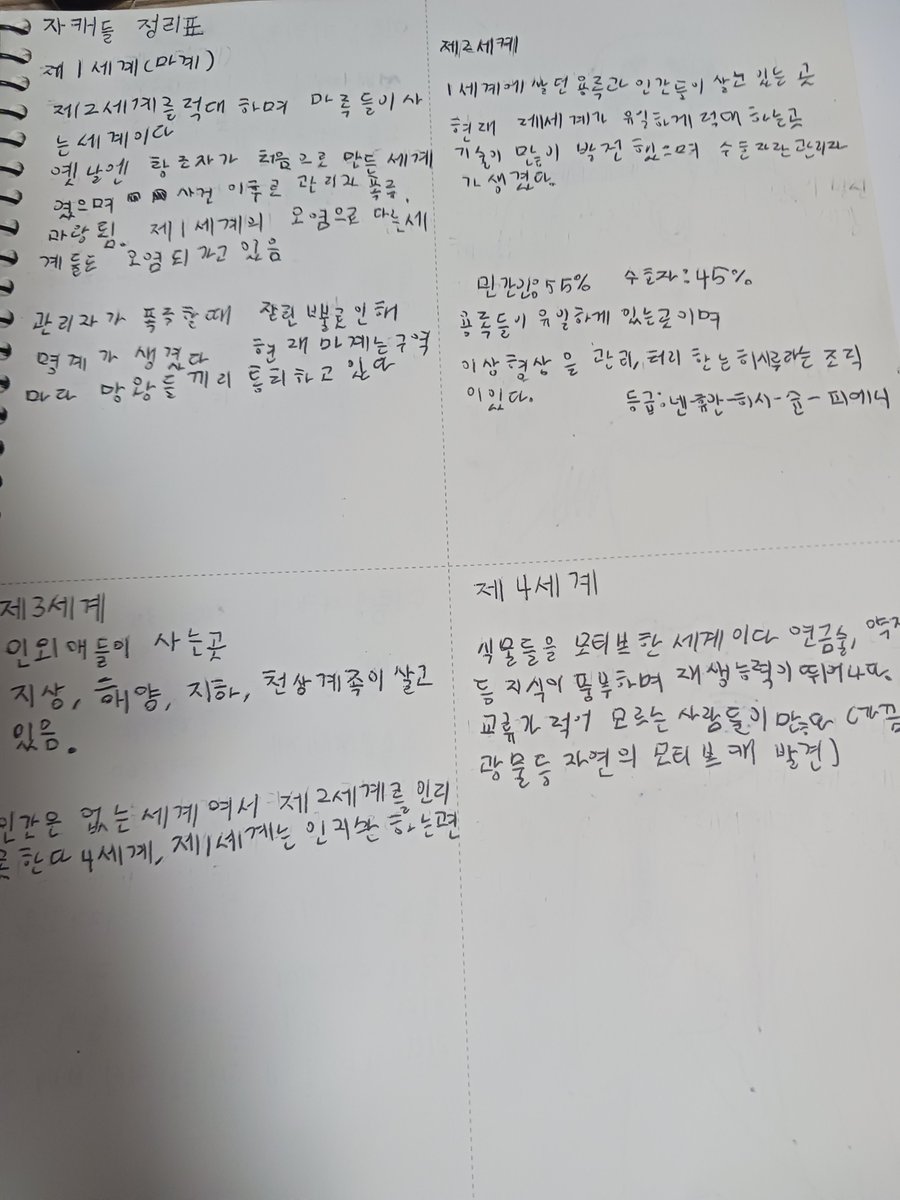 자캐들 정리표
제 1세계(마계)
제2세계를 적대 하며 마족들이 사
는 세계이다
옛날엔 창조자가 처음으로 만든 세계
였으며 사건 이후로 관리자 폭주.
타락됨. 제1세계의 오염으로 다른세
계들도 오염되가고 있음
관리자가 폭주할때 질린 불로인해
멸계가 생겼다 현재 마계는구역
마다 마왕들끼리 통치하고 있다
제2세계
1세계에 살던 용족과 인간들이 살고 있는 곳
현재 1세계가 유일하게 적대 하는곳
기술이 많이 발전 했으며 수호자란관리자
가 생겼다.
민간인:55% 수호자:45%
용족들이 유일하게 있는곳이며
이상현상을 관리, 처리 하는 히시루라는 조직
이있다.
제3세계
인외 애들이 사는곳
지상, 해양, 지하, 천상계족이 살고
있음.
인간은 없는 세계여서 제2세계를 인지
못한다 4세계, 제1세계는 인지만 하는편
제 4세계
식물들을 모티브한 세계이다 연금술,
등 지식이 풍부하며 재생능력이 뛰어나다.
교류가 적어 모르는 사람들이 많다 (가끔
광물등 자연의 모티브캐 발견)